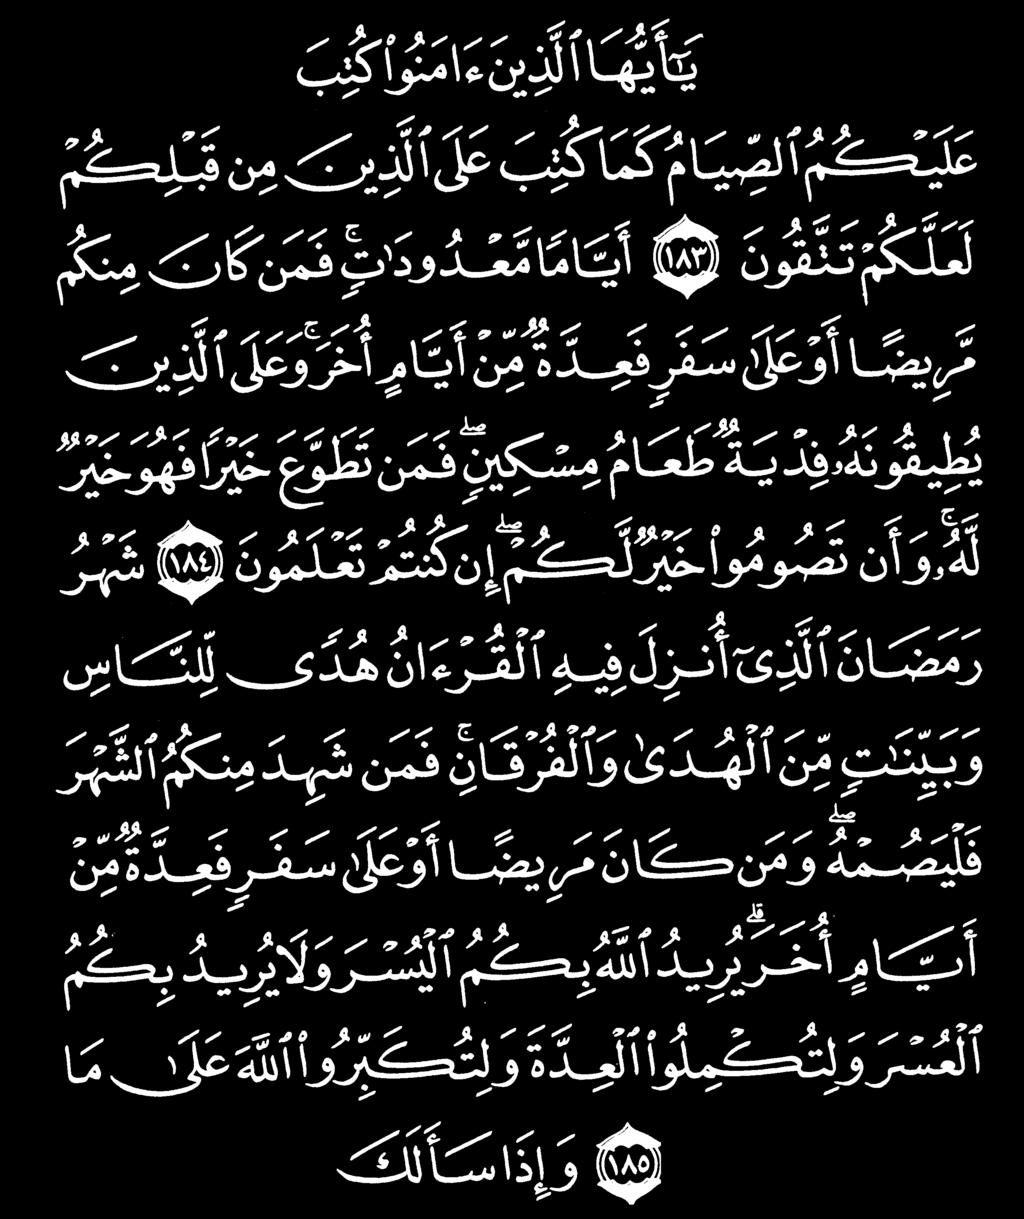 يَـٰٓأَيُّهَا ٱلَّذِينَ ءَامَنُوا۟ كُتِبَ
عَلَيْكُمُ ٱلصِّيَامُ كَمَا كُتِبَ عَلَى ٱلَّذِينَ مِن قَبْلِكُمْ
لَعَلَّكُمْ تَتَّقُونَ ١٨٣ أَيَّامًا مَّعْدُودَٰتٍ ۚ فَمَن كَانَ مِنكُم
مَّرِيضًا أَوْ عَلَىٰ سَفَرٍ فَعِدَّةٌ مِّنْ أَيَّامٍ أُخَرَ ۚ وَعَلَى ٱلَّذِينَ
يُطِيقُونَهُۥ فِدْيَةٌ طَعَامُ مِسْكِينٍ ۖ فَمَن تَطَوَّعَ خَيْرًا فَهُوَ خَيْرٌ
لَّهُۥ ۚ وَأَن تَصُومُوا۟ خَيْرٌ لَّكُمْ ۖ إِن كُنتُمْ تَعْلَمُونَ ١٨٤ شَهْرُ
رَمَضَانَ ٱلَّذِىٓ أُنزِلَ فِيهِ ٱلْقُرْءَانُ هُدًى لِّلنَّاسِ
وَبَيِّنَـٰتٍ مِّنَ ٱلْهُدَىٰ وَٱلْفُرْقَانِ ۚ فَمَن شَهِدَ مِنكُمُ ٱلشَّهْرَ
فَلْيَصُمْهُ ۖ وَمَن كَانَ مَرِيضًا أَوْ عَلَىٰ سَفَرٍ فَعِدَّةٌ مِّنْ
أَيَّامٍ أُخَرَ ۗ يُرِيدُ ٱللَّهُ بِكُمُ ٱلْيُسْرَ وَلَا يُرِيدُ بِكُمُ
ٱلْعُسْرَ وَلِتُكْمِلُوا۟ ٱلْعِدَّةَ وَلِتُكَبِّرُوا۟ ٱللَّهَ عَلَىٰ مَا
١٨٥ وَإِذَا سَأَلَكَ